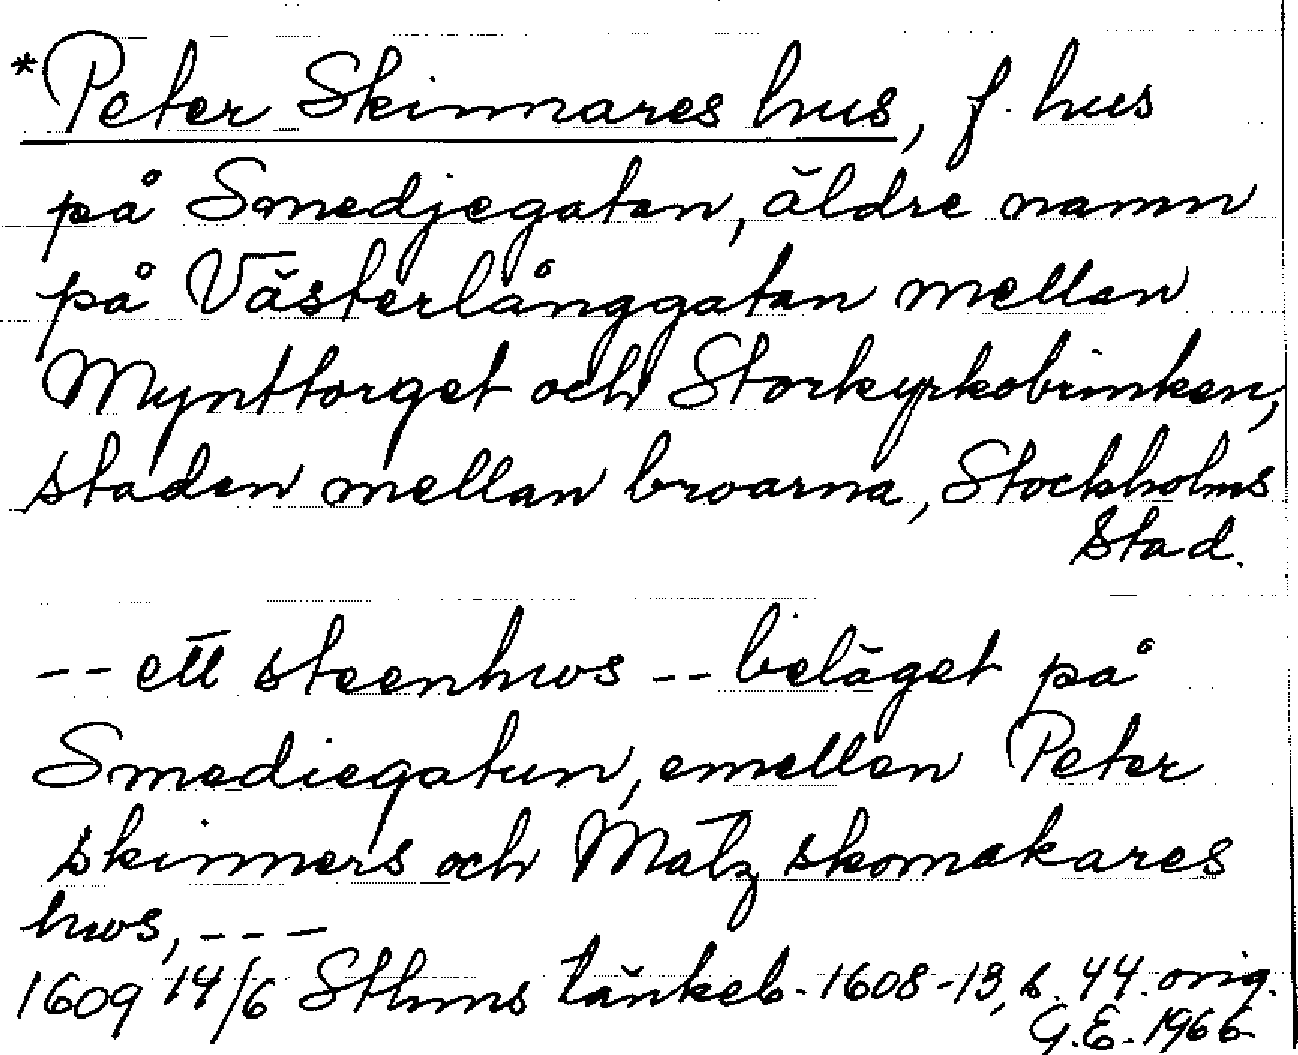 *Peter Skinnares hus, f. hus
på Smedjegatan, äldre namn
på Västerlånggatan mellan
Mynttorget och Storkyrkobrinken,
staden mellan broarna, Stockholms
stad.
-- ett steenhws -- beläget på
Smediegatun, emellen Peter
skinners och Matz skomakares
hws, ---
1609 14/6 Sthms tänkeb. 1608-13, s. 44. orig.
G.E. 1966